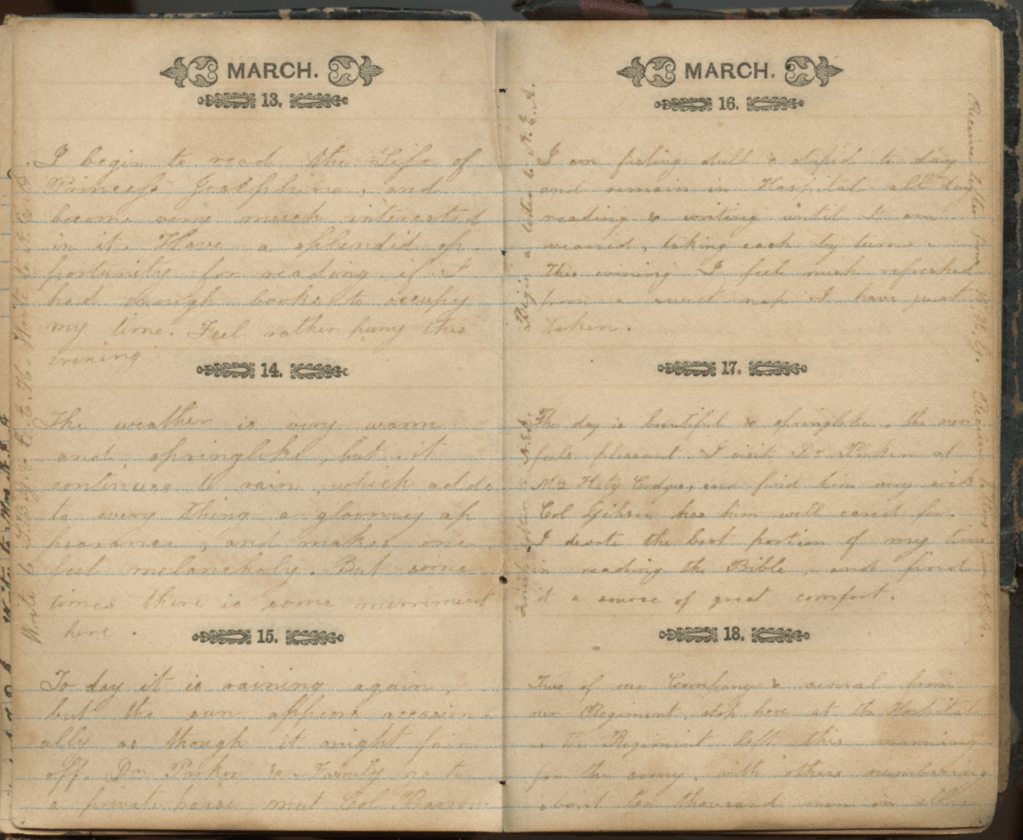 MARCH.
13.
I begin to read the Life of
Princess Josephine, and
become very much interested
in it. Have a splendid op
portunity for reading if I
had enough books to occupy
my time. Feel rather puny this
evening.
14.
The weather is very warm
and springlike, but it
continues to rain, which adds
to every thing a gloomy ap
pearance, and makes one
feel melancholy. But some
times there is some merriment
here.
15.
To day it is raining again,
but the sun appears occasion
ally as though it might fair
off. Dr. Parker & Family go to
a private house next Col
MARCH.
16.
I am feeling dull & stupid to day
and remain in Hospital all day
reading & writing until I am
wearied, taking each by turns.
This evening I feel much refreshed
from a sweet nap I have just
taken.
17.
The day is beautiful & springlike, the sun
feels pleasant. I visit Dr at
and find him very sick
Col has him well cared for.
I devote the best portion of my time
in reading the Bible, and find
it a source of great comfort.
18.
Two of our Company & several from
our Regiment, stop here at the Hospital
as the Regiment left this morning
for the army, with others numbering
about ten thousand men in all
Begin a letter to A. E. A.
letter from